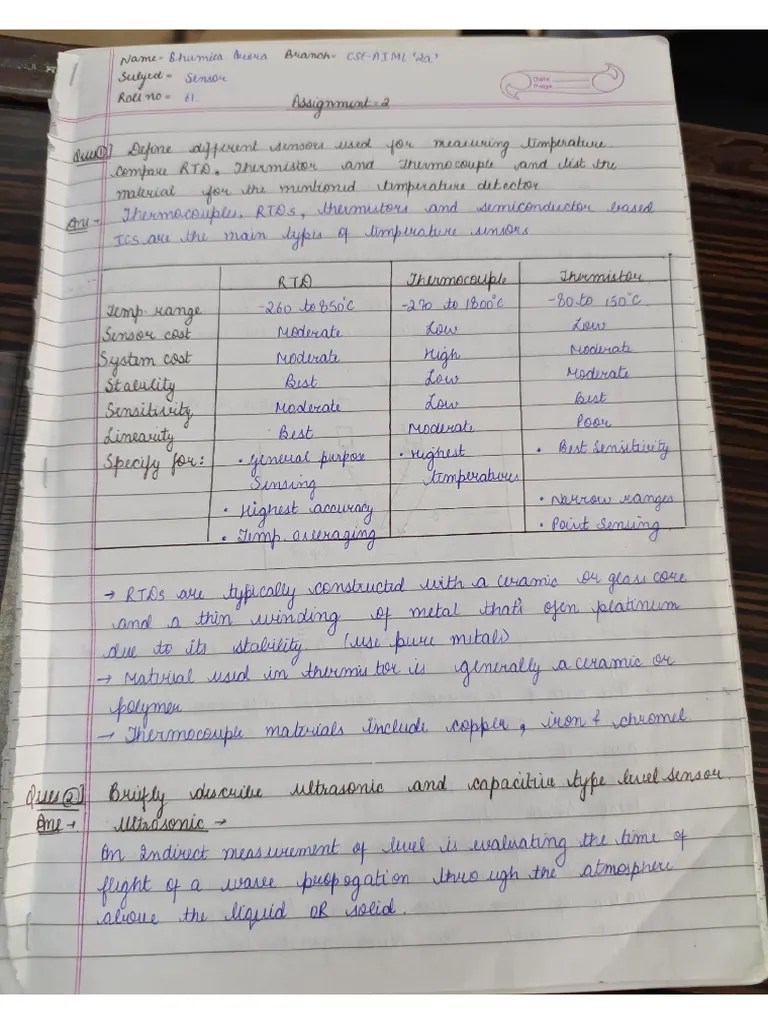 Name - Bhumica Branch - CSE-AIML '2a'
Subject = Sensor
Roll no = 61.
Date
Page
Assignment - 2
Ques① Define different sensors used for measuring temperature
compare RTD, Thermistor and thermocouple and list the
material for the mentioned temperature detector
Ans - Thermocouples, RTDs, thermistors and semiconductor based
ICS are the main types of temperature sensors
RTD Thermocouple Thermistor
Temp. range -260 to 850°C -270 to 1800°C -80 to 150°C
Sensor cost Moderate Low Low
System cost Moderate High Moderate
Stability Best Low Moderate
Sensitivity Moderate Low Best
Linearity Best Moderate Poor
Specify for: • general purpose • Highest • Best Sensitivity
Sensing temperatures
• Highest accuracy • Narrow ranges
• Temp. averaging • Point Sensing
→ RTDs are typically constructed with a ceramic or glass core
and a thin winding of metal that's ofen platinum
due to its stability (use pure metals)
→ Material used in thermistor is generally a ceramic or
polymer
→ Thermocouple materials include copper, iron & chromel
Ques② Briefly describe ultrasonic and capacitive type level sensor.
Ans → Ultrasonic →
An Indirect measurement of level is evaluating the time of
flight of a wave propogation through the atmosphere
above the liquid OR solid.